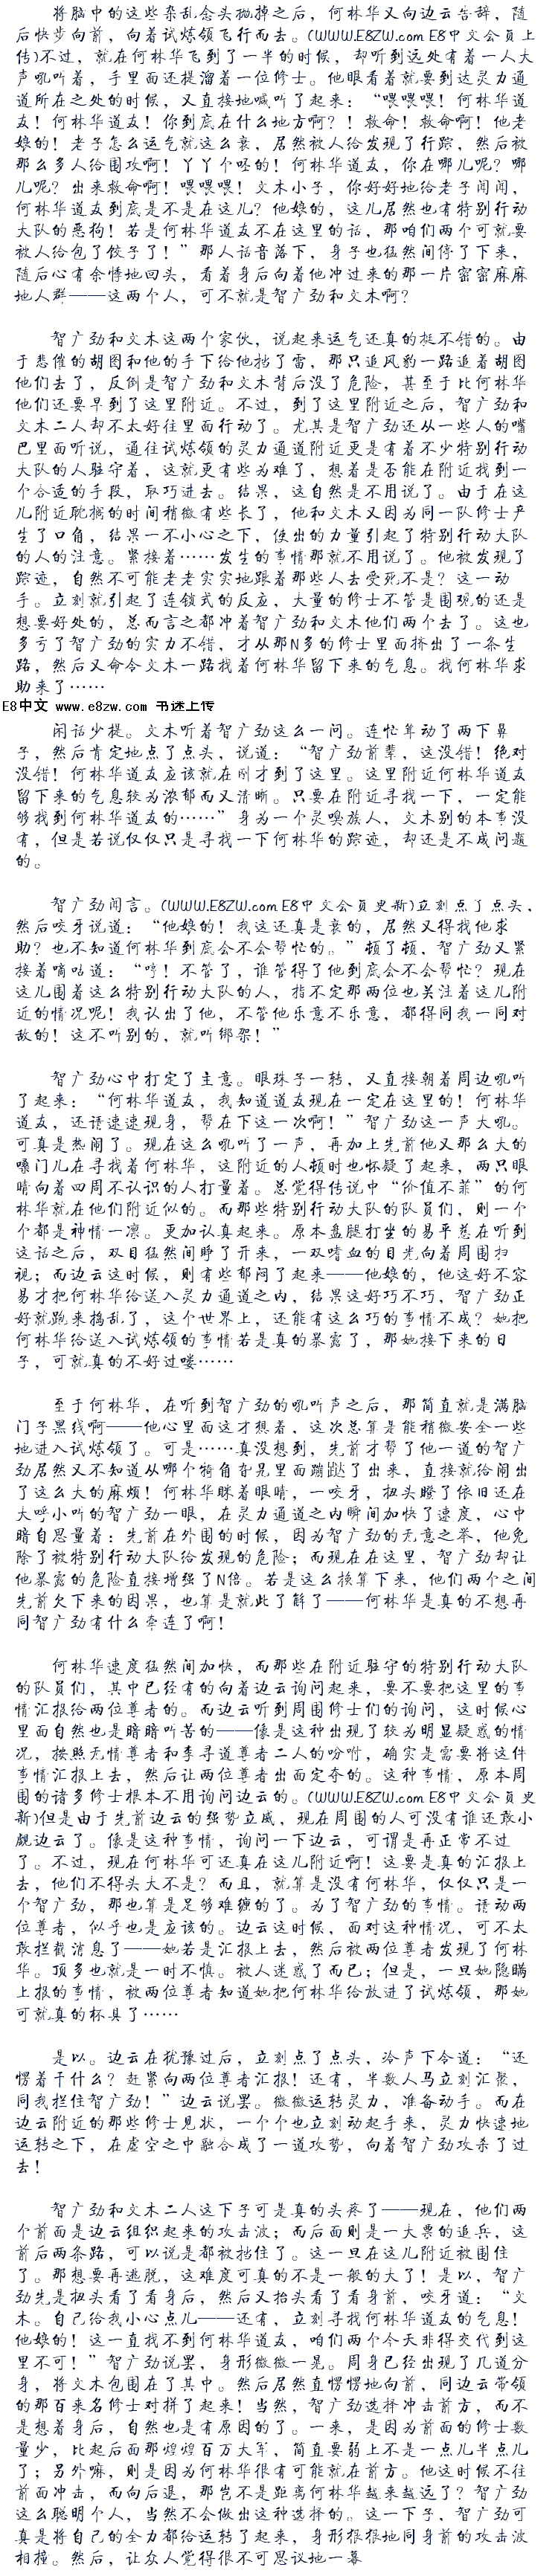 将脑中的这些杂乱念头抛掉之后，何林华又向边云告辞，随
后快步向前，向着试炼领飞行而去。(WWW.E8ZW.com E8中文会员上
传)不过，就在何林华飞到了一半的时候，却听到远处有着一人大
声吼听着，手里面还提溜着一位修士。他眼看着就要到达灵力通
道所在之处的时候，又直接地喊听了起来：“喂喂喂！何林华道
友！何林华道友！你到底在什么地方啊？！救命！救命啊！他老
娘的！老子怎么运气就这么衰，居然被人给发现了行踪，然后被
那么多人给围攻啊！丫丫个呸的！何林华道友，你在哪儿呢？哪
儿呢？出来救命啊！喂喂喂！文木小子，你好好地给老子闻闻，
何林华道友到底是不是在这儿？他娘的，这儿居然也有特别行动
大队的恶狗！若是何林华道友不在这里的话，那咱们两个可就要
被人给包了饺子了！”那人话音落下，身子也猛然间停了下来，
随后心有余悸地回头，看着身后向着他冲过来的那一片密密麻麻
地人群——这两个人，可不就是智广劲和文木啊？
智广劲和文木这两个家伙，说起来运气还真的挺不错的。由
于悲催的胡图和他的手下给他挡了雷，那只追风豹一路追着胡图
他们去了，反倒是智广劲和文木背后没了危险，甚至于比何林华
他们还要早到了这里附近。不过，到了这里附近之后，智广劲和
文木二人却不太好往里面行动了。尤其是智广劲还从一些人的嘴
巴里面听说，通往试炼领的灵力通道附近更是有着不少特别行动
大队的人驻守着，这就更有些为难了，想着是否能在附近找到一
个合适的手段，取巧进去。结果，这自然是不用说了。由于在这
儿附近耽搁的时间稍微有些长了，他和文木又因为同一队修士产
生了口角，结果一不小心之下，使出的力量引起了特别行动大队
的人的注意。紧接着……发生的事情那就不用说了。他被发现了
踪迹，自然不可能老老实实地跟着那些人去受死不是？这一动
手。立刻就引起了连锁式的反应，大量的修士不管是围观的还是
想要好处的，总而言之都冲着智广劲和文木他们两个去了。这也
多亏了智广劲的实力不错，才从那N多的修士里面挤出了一条生
路，然后又命令文木一路找着何林华留下来的气息。找何林华求
助来了……
E8中文 www.e8zw.com 书迷上传
闲话少提。文木听着智广劲这么一问。连忙耸动了两下鼻
子，然后肯定地点了点头，说道：“智广劲前辈，这没错！绝对
没错！何林华道友应该就在刚才到了这里。这里附近何林华道友
留下来的气息较为浓郁而又清晰。只要在附近寻找一下，一定能
够找到何林华道友的……”身为一个灵嗅族人，文木别的本事没
有，但是若说仅仅只是寻找一下何林华的踪迹，却还是不成问题
的。
智广劲闻言。(WWW.E8ZW.com E8中文会员更新)立刻点了点头，
然后咬牙说道：“他娘的！我这还真是衰的，居然又得找他求
助？也不知道何林华到底会不会帮忙的。”顿了顿，智广劲又紧
接着嘀咕道：“哼！不管了，谁管得了他到底会不会帮忙？现在
这儿围着这么特别行动大队的人，指不定那两位也关注着这儿附
近的情况呢！我认出了他，不管他乐意不乐意，都得同我一同对
敌的！这不听别的，就听绑架！”
智广劲心中打定了主意。眼珠子一转，又直接朝着周边吼听
了起来：“何林华道友，我知道道友现在一定在这里的！何林华
道友，还请速速现身，帮在下这一次啊！”智广劲这一声大吼。
可真是热闹了。现在这么吼听了一声，再加上先前他又那么大的
嗓门儿在寻找着何林华，这附近的人顿时也怀疑了起来，两只眼
睛向着四周不认识的人打量着。总觉得传说中“价值不菲”的何
林华就在他们附近似的。而那些特别行动大队的队员们，则一个
个都是神情一凛。更加认真起来。原本盘腿打坐的易平惹在听到
这话之后，双目猛然间睁了开来，一双嗜血的目光向着周围扫
视；而边云这时候，则有些郁闷了起来——他娘的，他这好不容
易才把何林华给送入灵力通道之内，结果这好巧不巧，智广劲正
好就跑来捣乱了，这个世界上，还能有这么巧的事情不成？她把
何林华给送入试炼领的事情若是真的暴露了，那她接下来的日
子，可就真的不好过喽……
至于何林华，在听到智广劲的吼听声之后，那简直就是满脑
门子黑线啊——他心里面这才想着，这次总算是能稍微安全一些
地进入试炼领了。可是……真没想到，先前才帮了他一道的智广
劲居然又不知道从哪个犄角旮旯里面蹦跶了出来，直接就给闹出
了这么大的麻烦！何林华眯着眼睛，一咬牙，扭头瞪了依旧还在
大呼小听的智广劲一眼，在灵力通道之内瞬间加快了速度，心中
暗自思量着：先前在外围的时候，因为智广劲的无意之举，他免
除了被特别行动大队给发现的危险；而现在在这里，智广劲却让
他暴露的危险直接增强了N倍。若是这么换算下来，他们两个之间
先前欠下来的因果，也算是就此了解了——何林华是真的不想再
同智广劲有什么牵连了啊！
何林华速度猛然间加快，而那些在附近驻守的特别行动大队
的队员们，其中已经有的向着边云询问起来，要不要把这里的事
情汇报给两位尊者的。而边云听到周围修士们的询问，这时候心
里面自然也是暗暗听苦的——像是这种出现了较为明显疑惑的情
况，按照无情尊者和李寻道尊者二人的吩咐，确实是需要将这件
事情汇报上去，然后让两位尊者出面定夺的。这种事情，原本周
围的诸多修士根本不用询问边云的。(WWW.E8ZW.com E8中文会员更
新)但是由于先前边云的强势立威，现在周围的人可没有谁还敢小
觑边云了。像是这种事情，询问一下边云，可谓是再正常不过
了。不过，现在何林华可还真在这儿附近啊！这要是真的汇报上
去，他们不得头大不是？而且，就算是没有何林华，仅仅只是一
个智广劲，那也算是足够难缠的了。为了智广劲的事情。请动两
位尊者，似乎也是应该的。边云这时候，面对这种情况，可不太
敢拦截消息了——她若是汇报上去，然后被两位尊者发现了何林
华。顶多也就是一时不慎。被人迷惑了而已；但是，一旦她隐瞒
上报的事情，被两位尊者知道她把何林华给放进了试炼领，那她
可就真的杯具了……
是以。边云在犹豫过后，立刻点了点头，冷声下令道：“还
愣着干什么？赶紧向两位尊者汇报！还有，半数人马立刻汇聚，
同我拦住智广劲！”边云说罢。微微运转灵力，准备动手。而在
边云附近的那些修士见状，一个个也立刻动起手来，灵力快速地
运转之下，在虚空之中融合成了一道攻势，向着智广劲攻杀了过
去！
智广劲和文木二人这下子可是真的头疼了——现在，他们两
个前面是边云组织起来的攻击波；而后面则是一大票的追兵，这
前后两条路，可以说是都被挡住了。这一旦在这儿附近被围住
了。那想要再逃脱，这难度可真的不是一般的大了！是以，智广
劲先是扭头看了看身后，然后又抬头看了看身前，咬牙道：“文
木。自己给我小心点儿——还有，立刻寻找何林华道友的气息！
他娘的！这一直找不到何林华道友，咱们两个今天非得交代到这
里不可！”智广劲说罢，身形微微一晃。周身已经出现了几道分
身，将文木包围在了其中。然后居然直愣愣地向前，同边云带领
的那百来名修士对拼了起来！当然，智广劲选择冲击前方，而不
是想着身后，自然也是有原因的了。一来，是因为前面的修士数
量少，比起后面那煌煌百万大军，简直要弱上不是一点儿半点儿
了；另外嘛，则是因为何林华很有可能就在前方。他这时候不往
前面冲击，而向后退，那岂不是距离何林华越来越远了？智广劲
这么聪明个人，当然不会做出这种选择的。这一下子，智广劲可
真是将自己的全力都给运转了起来，身形狠狠地同身前的攻击波
相撞。然后，让众人觉得很不可思议地一幕